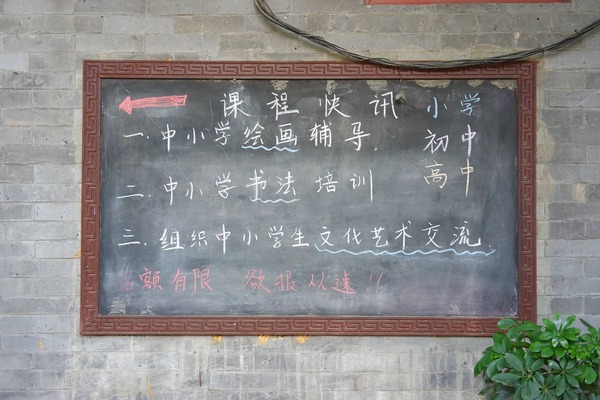 课程快讯 小学
一.中小学绘画辅导. 初中
高中
二.中小学书法培训
三.组织中小学生文化艺术交流.
名额有限 欲报从速!!